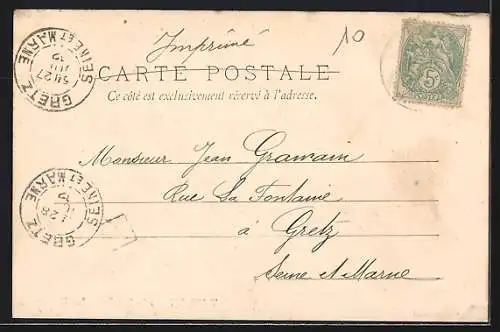 Imprimé
10
CARTE POSTALE
Ce côté est exclusivement réservé à l'adresse.
5c
GRETZ
SEINE ET MARNE
5H 27
Monsieur Jean Gramain
Rue La Fontaine
à Gretz
Seine et Marne
GRETZ
SEINE ET MARNE
28